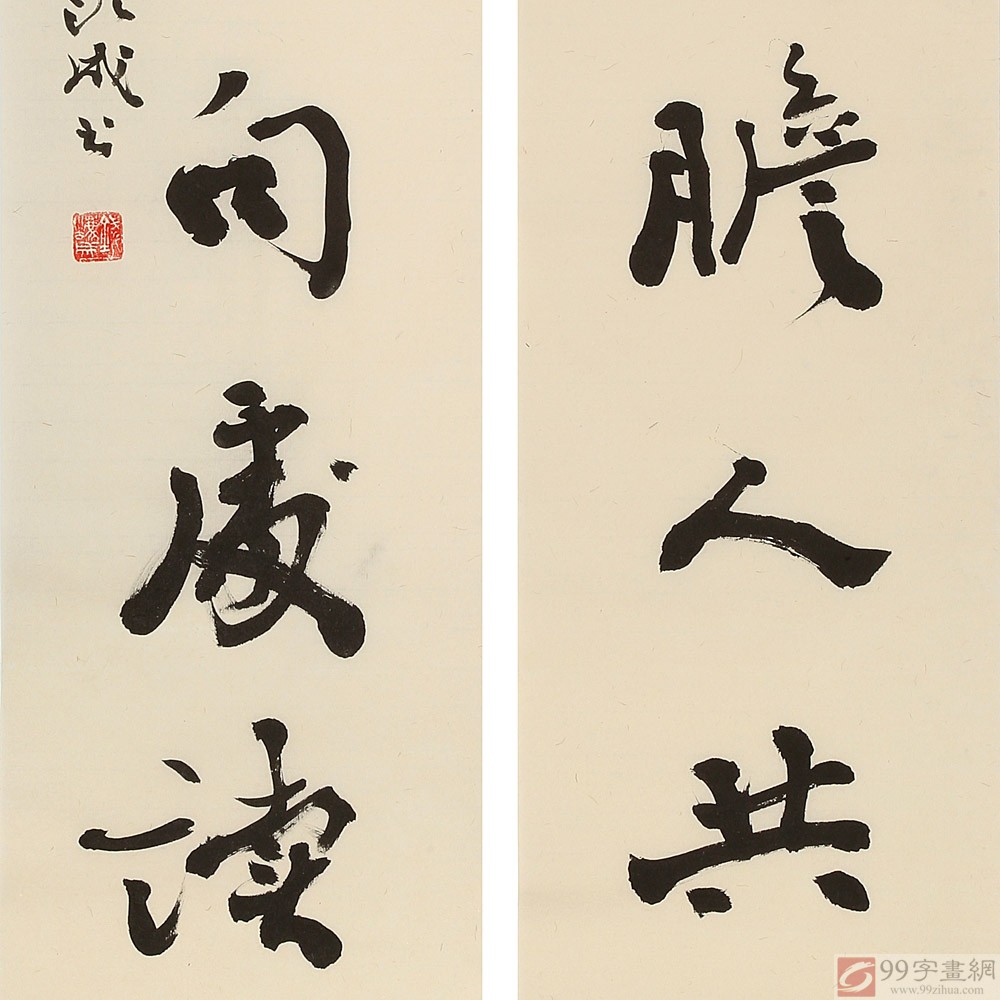 膽人共
句處讀
成书
99字畫網
www.99zihua.com